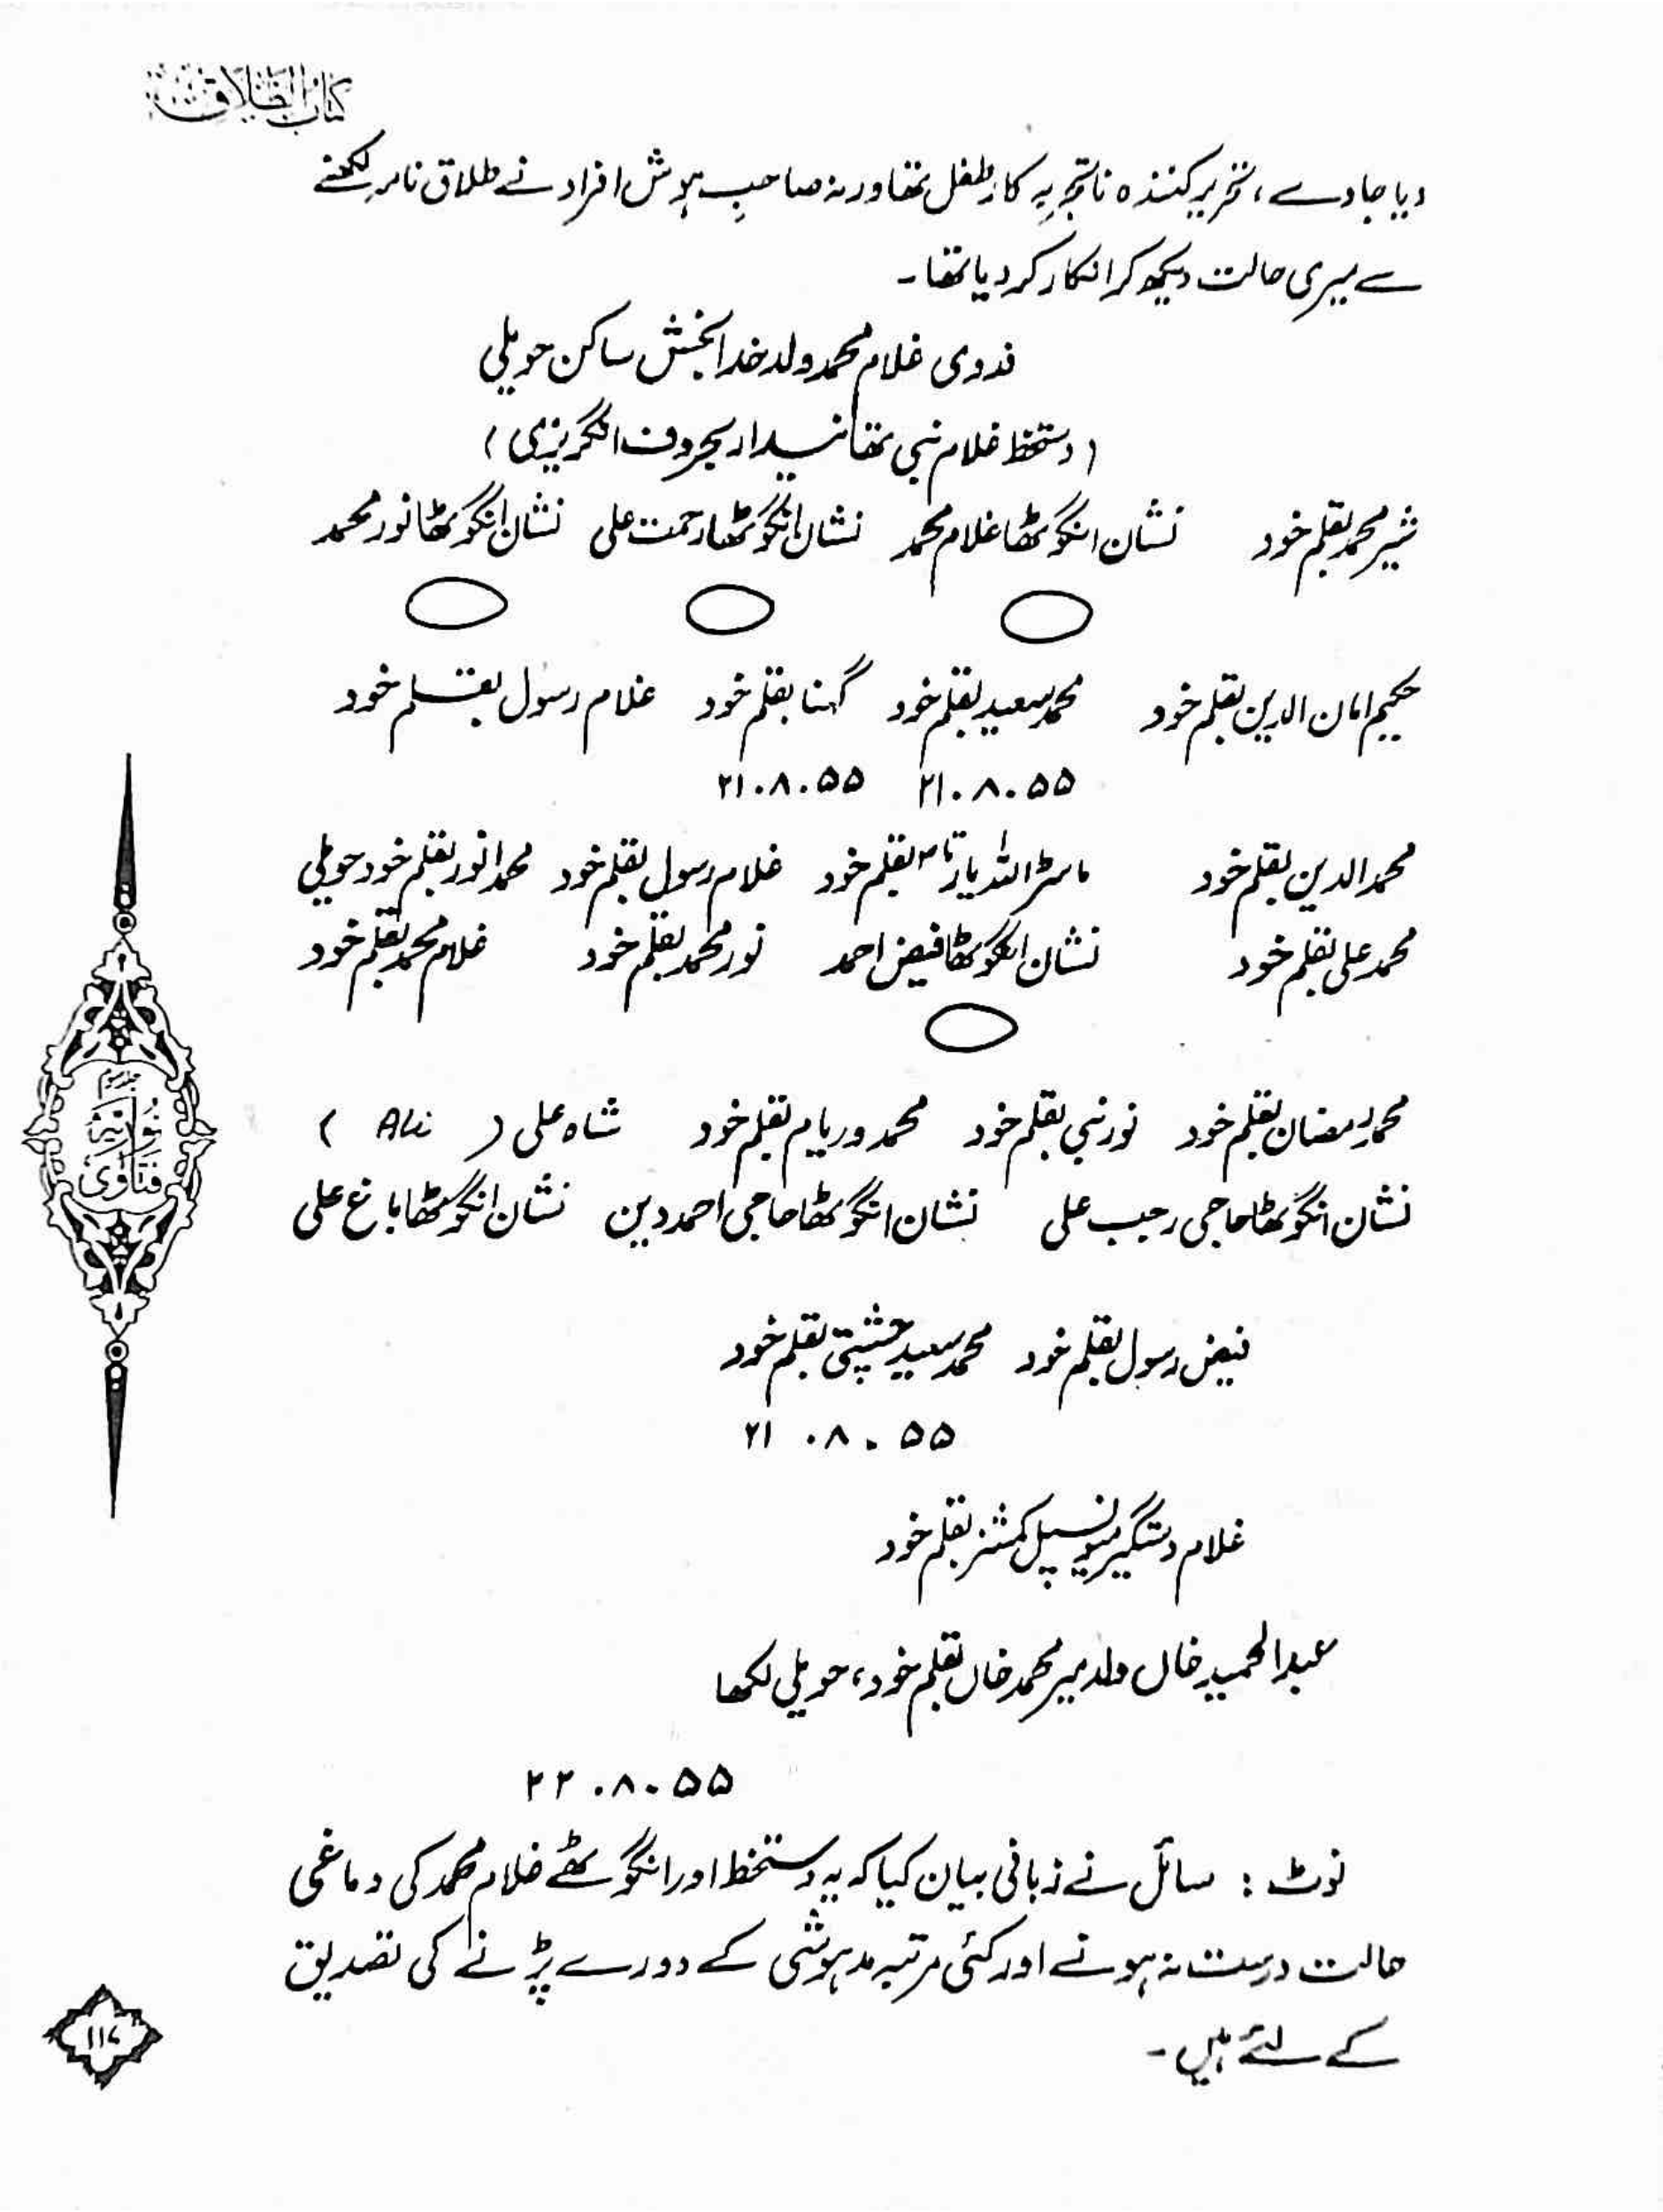 کتاب الطلاق
دیا جاوے، تحریر کنندہ ناتجربہ کار طفل تھا ورنہ صاحبِ ہوش افراد نے طلاق نامہ لکھنے
سے میری حالت دیکھ کر انکار کر دیا تھا۔
فدوی غلام محمد ولد خدا بخش ساکن حویلی
(دستخط غلام نبی تھانیدار بحروف انگریزی)
شیر محمد بقلم خود نشان انگوٹھا غلام محمد نشان انگوٹھا رحمت علی نشان انگوٹھا نور محمد
حکیم امان الدین بقلم خود محمد سعید بقلم خود گہنا بقلم خود غلام رسول بقلم خود
۲۱.۸.۵۵ ۲۱.۸.۵۵
محمد الدین بقلم خود ماسٹر اللہ یار بقلم خود غلام رسول بقلم خود محمد انور بقلم خود حویلی
محمد علی بقلم خود نشان انگوٹھا فیض احمد نور محمد بقلم خود غلام محمد بقلم خود
محمد رمضان بقلم خود نور نبی بقلم خود محمد وریام بقلم خود شاہ علی (Ali)
نشان انگوٹھا حاجی رجب علی نشان انگوٹھا حاجی احمد دین نشان انگوٹھا باغ علی
فیض رسول بقلم خود محمد سعید چشتی بقلم خود
۲۱.۸.۵۵
غلام دستگیر میونسپل کمشنر بقلم خود
عبدالحمید خاں ولد میر محمد خاں بقلم خود، حویلی لکھا
۲۲.۸.۵۵
نوٹ: سائل نے زبانی بیان کیا کہ یہ دستخط اور انگوٹھے غلام محمد کی دماغی
حالت درست نہ ہونے اور کئی مرتبہ مدہوشی کے دورے پڑنے کی تصدیق
کے لئے ہیں۔
فتاوی نوریہ
۱۱۷